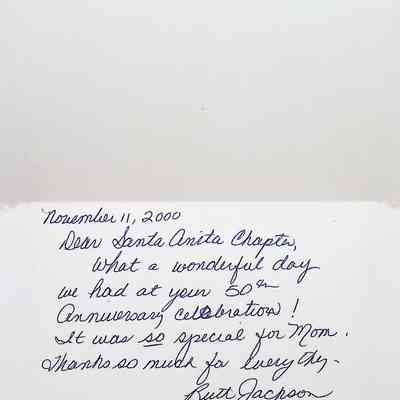 November 11, 2000
Dear Santa Anita Chapter,
What a wonderful day
we had at your 50th
Anniversary celebration!
It was so special for Mom.
Thanks so much for everything-
Ruth Jackson